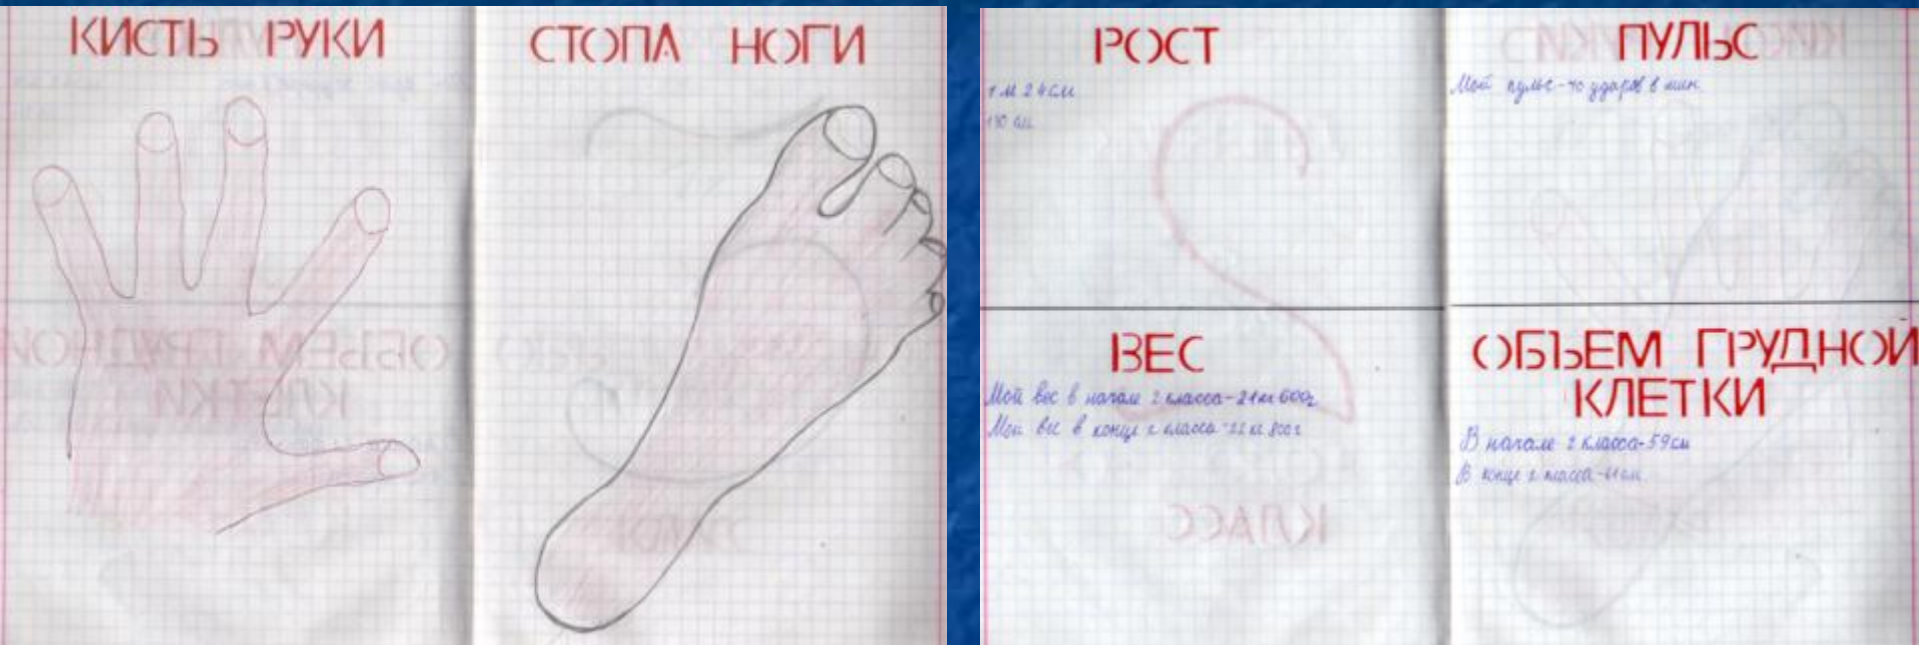 КИСТЬ РУКИ
СТОПА НОГИ
РОСТ
1 м 24 см
130 см
ПУЛЬС
Мой пульс-70 ударов в мин.
ВЕС
Мой вес в начале 2 класса-21 кг 600г
Мой вес в конце 2 класса-22 кг 800г
ОБЪЕМ ГРУДНОЙ
КЛЕТКИ
В начале 2 класса-59см
В конце 2 класса-61см